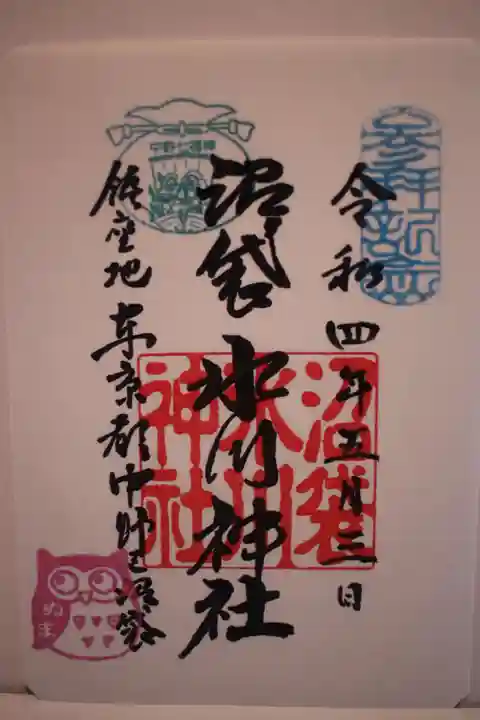 参拝記念
令和四年五月三日
沼袋氷川神社
沼袋
氷川
神社
鎮座地 東京都中野区沼袋
ぬま